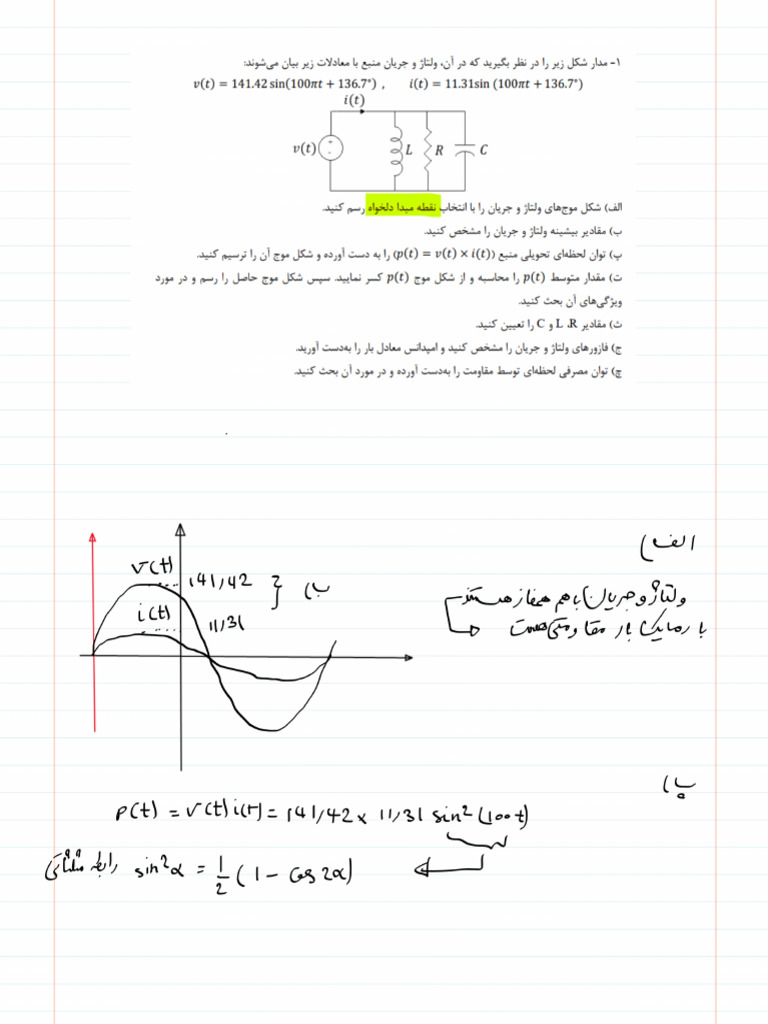 ۱- مدار شکل زیر را در نظر بگیرید که در آن، ولتاژ و جریان منبع با معادلات زیر بیان می‌شوند:
v(t) = 141.42 sin(100πt + 136.7°) ,    i(t) = 11.31sin (100πt + 136.7°)
i(t)
v(t) + - L R C
الف) شکل موج‌های ولتاژ و جریان را با انتخاب نقطه مبدا دلخواه رسم کنید.
ب) مقادیر بیشینه ولتاژ و جریان را مشخص کنید.
پ) توان لحظه‌ای تحویلی منبع (p(t) = v(t) × i(t)) را به دست آورده و شکل موج آن را ترسیم کنید.
ت) مقدار متوسط p(t) را محاسبه و از شکل موج p(t) کسر نمایید. سپس شکل موج حاصل را رسم و در مورد
ویژگی‌های آن بحث کنید.
ث) مقادیر L ،R و C را تعیین کنید.
ج) فازورهای ولتاژ و جریان را مشخص کنید و امپدانس معادل بار را به‌دست آورید.
چ) توان مصرفی لحظه‌ای توسط مقاومت را به‌دست آورده و در مورد آن بحث کنید.
الف)
v(t) 141/42 ب)
i(t) 11/31
ولتاژ و جریان با هم همفاز هستند
بار ما یک بار مقاومتی هست
پ)
p(t) = v(t) i(t) = 141/42 × 11/31 sin² (100t)
رابطه مثلثاتی sin²α = 1/2 (1 - cos 2α)